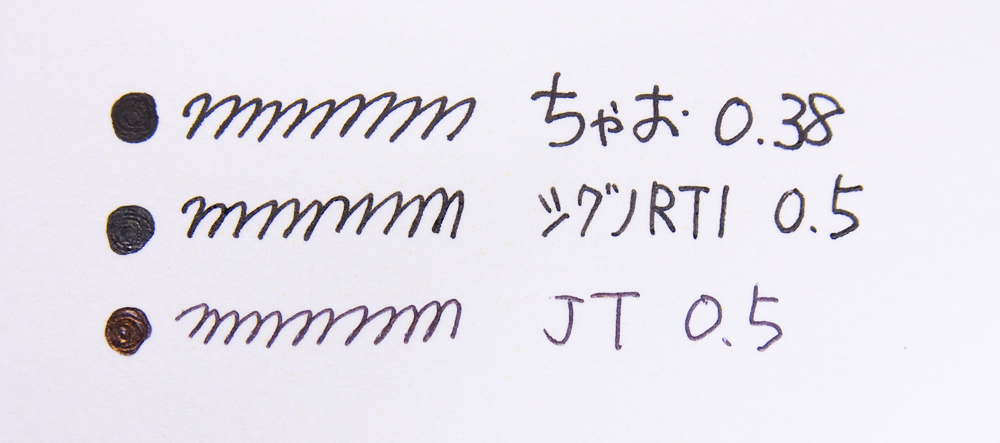 ちゃお 0.38
シグノRT1 0.5
JT 0.5